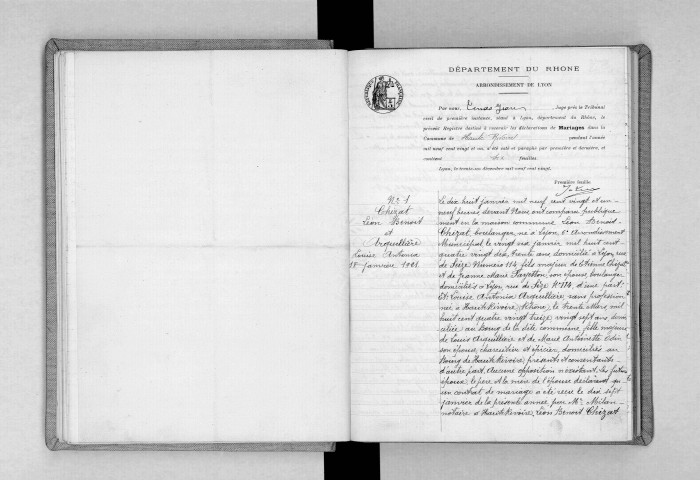 DÉPARTEMENT DU RHONE
ARRONDISSEMENT DE LYON
Par nous, Jean, Juge près le Tribunal
civil de première instance, séant à Lyon, département du Rhône, le
présent Registre destiné à recevoir les déclarations de Mariages dans la
Commune de Haute Rivoire pendant l'année
mil neuf cent vingt et un, a été coté et paraphé par première et dernière, et
contient feuilles.
Lyon, le trente-un décembre mil neuf cent vingt.
Première feuille.
N° 1
Chézat
Léon Benoit
et
Arquillière
Louise Antonia
18 janvier
Le dix huit janvier mil neuf cent vingt et un
neuf heures, devant Nous ont comparu publique
ment en la maison commune Léon Benoit
Chézat, boulanger, né à Lyon 6e Arrondissement
Municipal, le vingt janvier mil huit cent
quatre vingt dix, trente ans, domicilié à Lyon, rue
de Sèze Numéro 114 fils majeur de Etienne Chézat
et de Jeanne Marie son épouse, boulangers
domiciliés à Lyon, rue de Sèze N° 114, d'une part;
Et Louise Antonia Arquillière, sans profession
née à Haute Rivoire, Rhône, le trente Mars mil
huit cent quatre vingt treize, vingt sept ans, domi
ciliée au Bourg de la dite commune, fille majeure
de Louis Arquillière et de Marie Antoinette
son épouse, charcutier et épicier, domiciliés au
Bourg de Haute Rivoire, présents et consentants
d'autre part. Aucune opposition n'existant. Les futurs
époux, le père et la mère de l'épouse déclarent qu'
un contrat de mariage a été reçu le dix sept
janvier de la présente année, par Me
notaire à Haute Rivoire, Léon Benoit Chézat